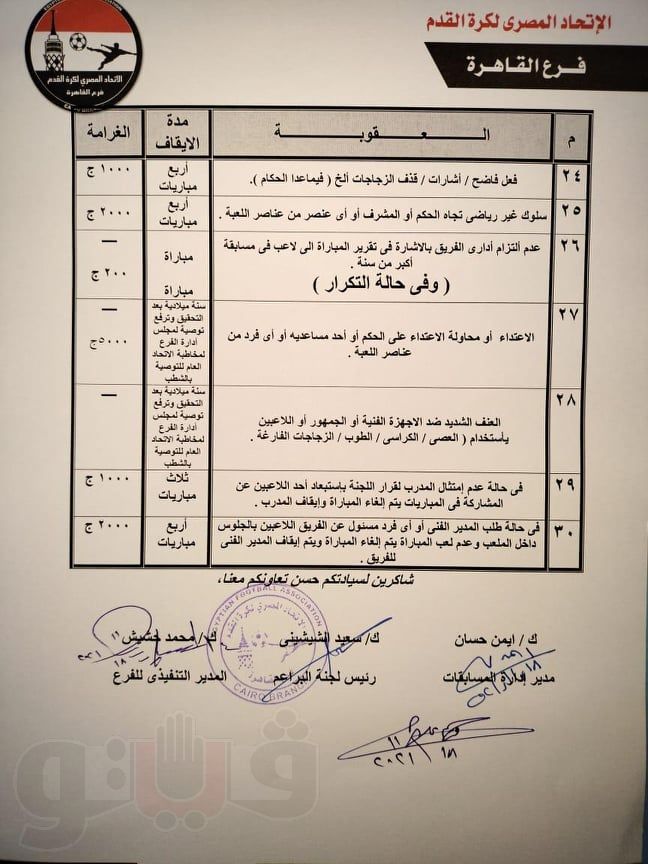 الإتحاد المصرى لكرة القدم
فرع القاهرة
الاتحاد المصرى لكرة القدم
فرع القاهرة
م
العقوبة
مدة
الايقاف
الغرامة
٢٤
فعل فاضح / أشارات / قذف الزجاجات ألخ ( فيماعدا الحكام ).
أربع
مباريات
١٠٠٠ ج
٢٥
سلوك غير رياضى تجاه الحكم أو المشرف أو أى عنصر من عناصر اللعبة .
أربع
مباريات
٢٠٠٠ ج
٢٦
عدم ألتزام أدارى الفريق بالاشارة فى تقرير المباراة الى لاعب فى مسابقة
أكبر من سنة .
( وفى حالة التكرار )
مباراة
مباراة
—
٢٠٠ ج
٢٧
الاعتداء أو محاولة الاعتداء على الحكم أو أحد مساعديه أو أى فرد من
عناصر اللعبة .
سنة ميلادية بعد
التحقيق وترفع
توصية لمجلس
أدارة الفرع
لمخاطبة الاتحاد
العام للتوصية
بالشطب
—
٥٠٠٠ج
٢٨
العنف الشديد ضد الاجهزة الفنية أو الجمهور أو اللاعبين
بأستخدام ( العصى / الكراسى / الطوب / الزجاجات الفارغة .
سنة ميلادية بعد
التحقيق وترفع
توصية لمجلس
أدارة الفرع
لمخاطبة الاتحاد
العام للتوصية
بالشطب
—
٢٩
فى حالة عدم إمتثال المدرب لقرار اللجنة بإستبعاد أحد اللاعبين عن
المشاركة فى المباريات يتم إلغاء المباراة وإيقاف المدرب .
ثلاث
مباريات
١٠٠٠ ج
٣٠
فى حالة طلب المدير الفنى أو أى فرد مسئول عن الفريق اللاعبين بالجلوس
داخل الملعب وعدم لعب المباراة يتم إلغاء المباراة ويتم إيقاف المدير الفنى
للفريق .
أربع
مباريات
٢٠٠٠ ج
شاكرين لسيادتكم حسن تعاونكم معنا،
ك / ايمن حسان
ك/ سعيد الشيشينى
ك/ محمد حشيش
مدير إدارة المسابقات
رئيس لجنة البراعم
المدير التنفيذى للفرع
EGYPTIAN FOOTBALL ASSOCIATION
CAIRO BRANCH
٢٠٢١/١١/٨
فيتو